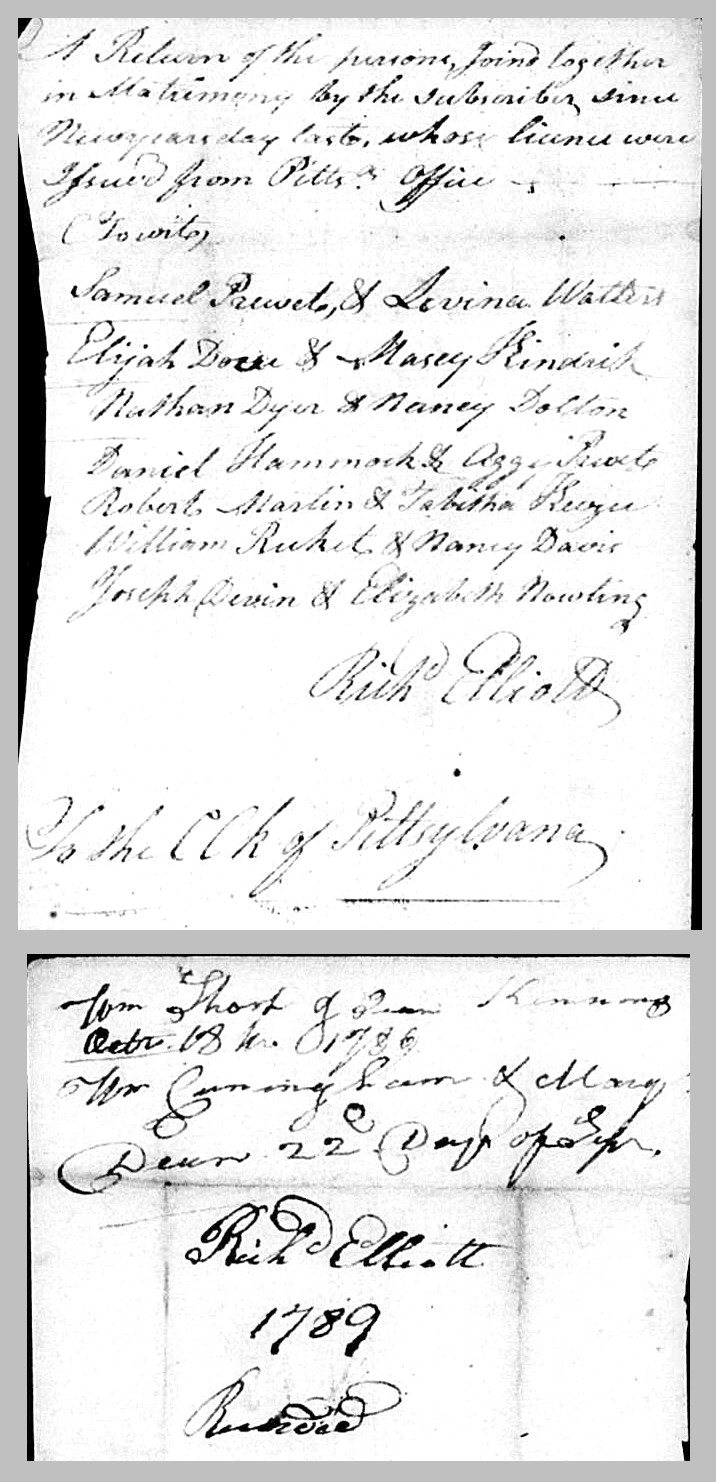 A Return of the persons Joind together
in Matrimony by the subscriber since
Newyearsday last, whose licence were
Issued from Pittsa. Office
(Towit,
Samuel Prewet, & Levina Watters
Elijah & Masey Kindrik
Nathan Dyer & Nancy Dolton
Daniel Hammock & Aggy Prewet
Robert Martin & Tabitha
William & Nancy Davis
Joseph Devin & Elizabeth Nowling
Richd Elliott
To the Clk of Pittsylvana
Wm Short
Octr. 18 1789
Wm Cuningham & Mary
Dean 22 Day of
Richd Elliott
1789
Recorded